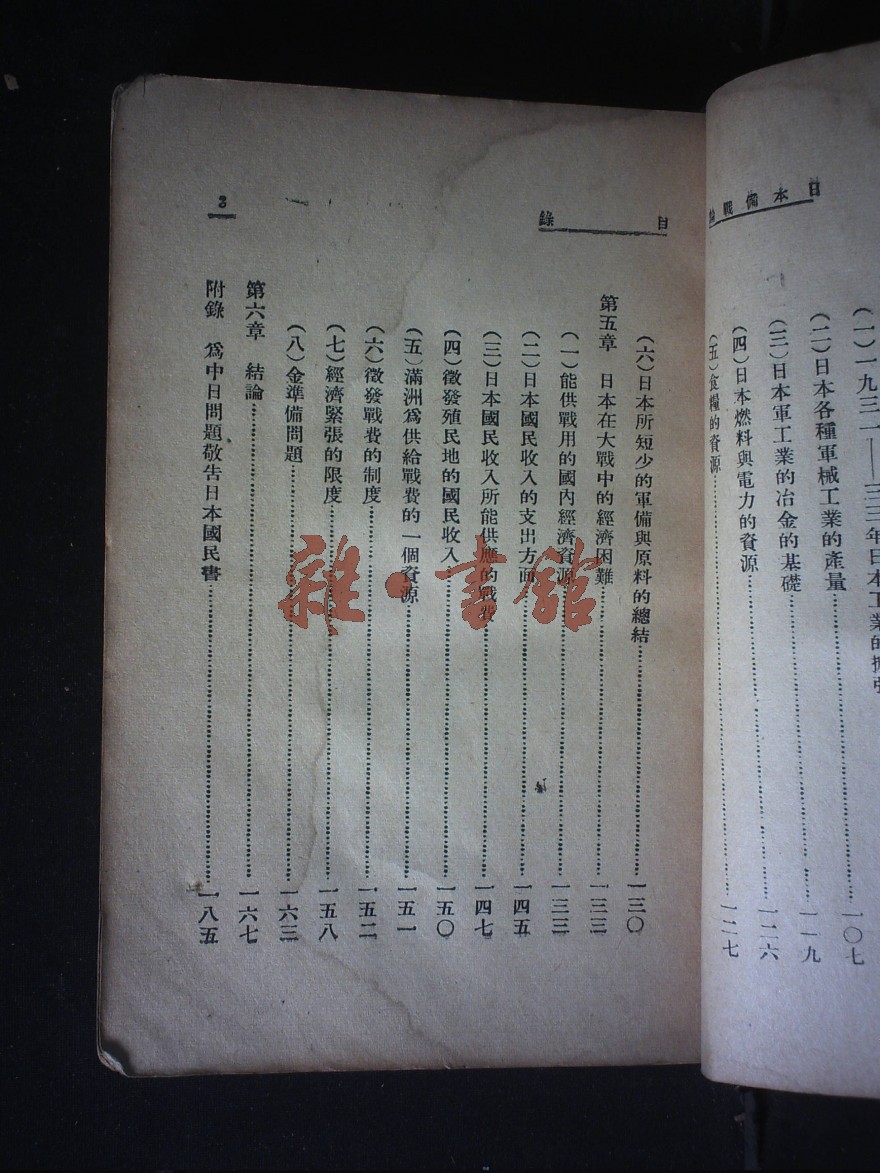 日本備戰論
(一)一九三一——三三年日本工業的擴張……一〇七
(二)日本各種軍械工業的產量……一一九
(三)日本軍工業的冶金的基礎……一二六
(四)日本燃料與電力的資源……一二七
(五)食糧的資源
目錄
3
(六)日本所短少的軍備與原料的總結……一三〇
第五章 日本在大戰中的經濟困難……一三三
(一)能供戰用的國內經濟資源……一三三
(二)日本國民收入的支出方面……一四五
(三)日本國民收入所能供應的戰費……一四七
(四)徵發殖民地的國民收入……一五〇
(五)滿洲爲供給戰費的一個資源……一五一
(六)徵發戰費的制度……一五二
(七)經濟緊張的限度……一五八
(八)金準備問題……一六三
第六章 結論……一六七
附錄 爲中日問題敬告日本國民書……一八五
雜·書館